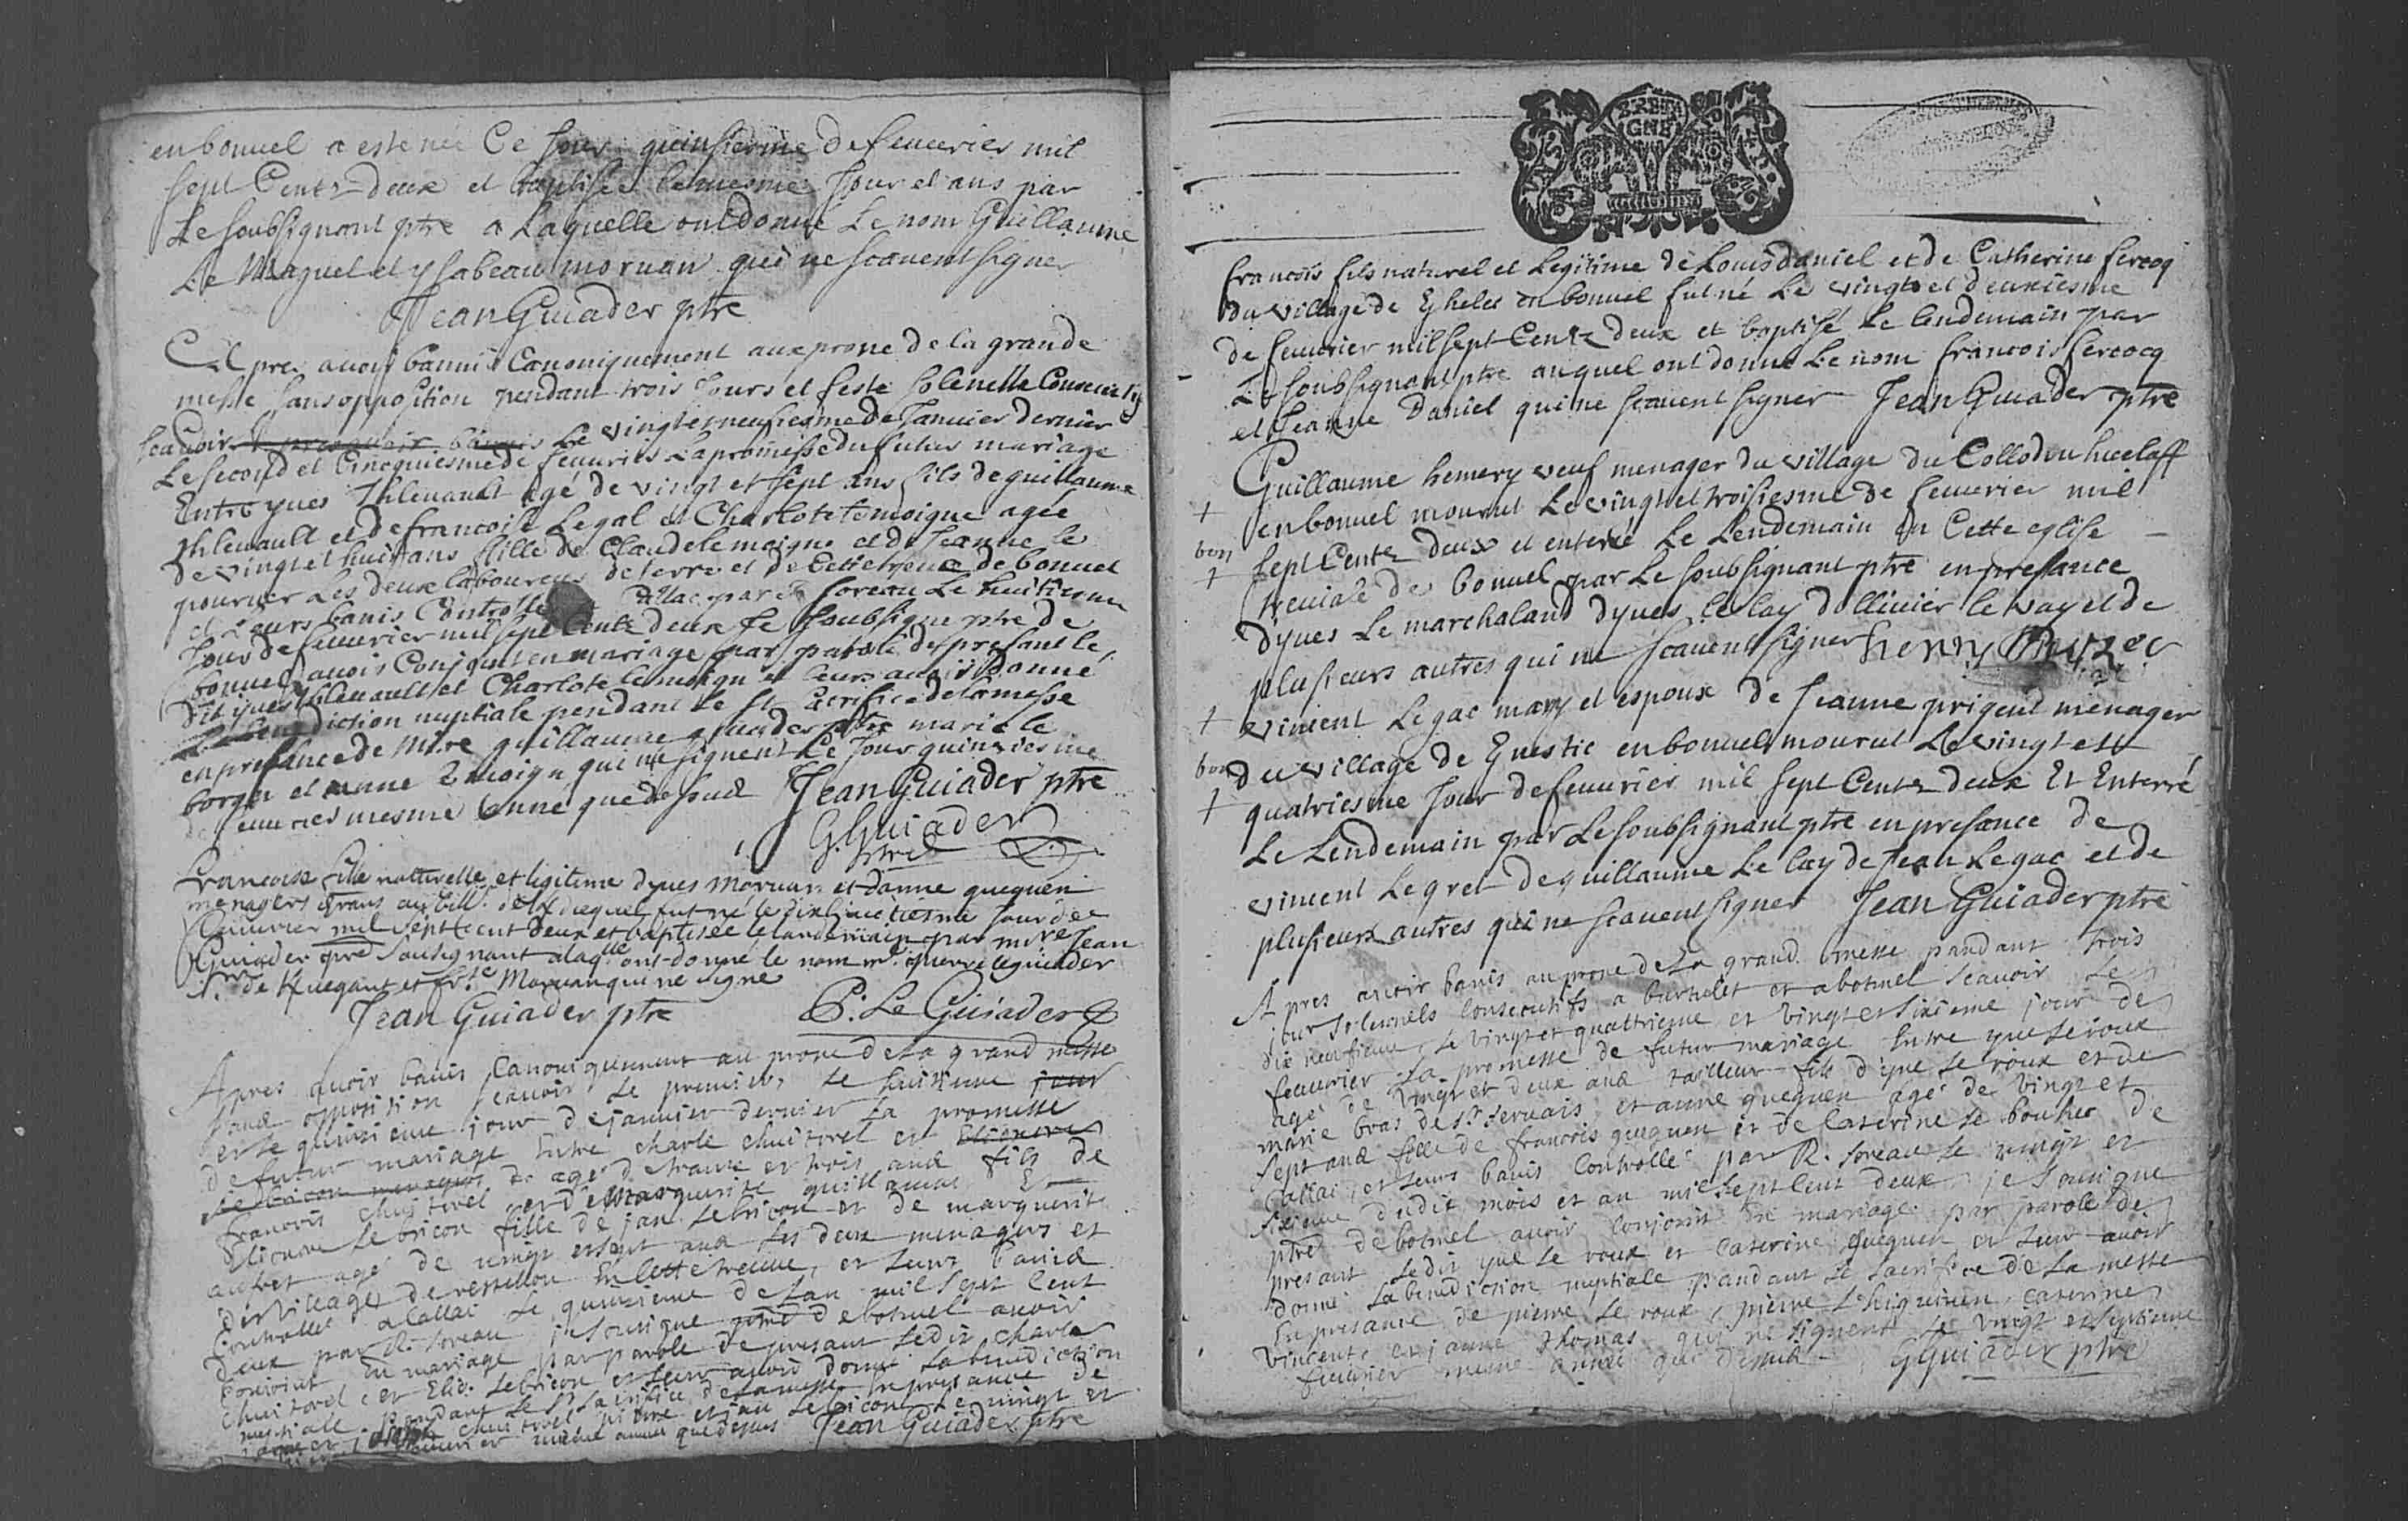 en bonuel a este née Ce Jour quinsiesme De feuurier mil
sept Cents Deux et baptisée le mesme Jour et ans par
Le soubsignant ptre a Laquelle ont donné Le nom Guillaume
Le et ysabeau moruan qui ne scauent signer
Jean Guiader ptre
Apres auoir banni Canoniquement aux prone de la grande
messe sans opposition pendant trois Jours et feste solenelle
scauoir Le vingt et neufiesme de Januier dernier
Le second et Cincquiesme de feuurier La promisse du futur mariage
Entre yues Thleuault agé de vingt et sept ans fils de guillaume
Thleuault et de francoise Legal et Charlote lemoigne agée
de vingt et huit ans fille de Claude lemoigne et de Jeanne le
pouruer Les deux laboureurs de terre et de Cette treue de bonuel
et Leurs banis Controllé Callac par soreau Le huitiesme
Jour de feuurier mil sept Cents deux Je soubsigne ptre de
bonuel auoir Conjoint en mariage par parole de presant le
dit yues Thleuault et Charlote lemoign et leurs auoir donné
La benediction nuptiale pendant le St sacrifice de la messe
en presance de Mire guillaume guiader ptre marie le
borgn et anne Lemoign qui ne signent Le Jour quinziesme
de feuurier mesme anné que dessus Jean Guiader ptre
G. Guiader
ptre
Francoise fille naturelle et legitime dyues Moruan et danne queguen
menagers fut né le dixhuictiesme Jour de
feuurier mil sept cent deux et baptisée le landemain par mire Jean
Guiader ptre sousignant alaqlle ont donné le nom mr pierre leguiader
Sr de Kuegant et Moruan qui ne signe
Jean Guiader ptre P. Le Guiader
Apres auoir banis Canoniquement au prone de La grand messe
sans opposition scauoir Le premier, le huitieme jour
et le quinzieme jour de januier dernier La promesse
de futur mariage Entre charle chuitorel et
agé de trante et trois ans fils de
francois chuitorel et de Marguerite guillaume Et
Elionore Le bicon fille de jan Le bicon et de marguerit
autret agé de uingt et sept ans les deux menagers et
du village de restellou En Cette treuue, et Leurs banis
Controllés a Callac Le quinzieme de Lan mil sept Cent
deux par R. soreau je sousigne ptre de botmel auoir
Conjoint En mariage par parole de presant Ledit charle
chuitorel et Elio. Lebicon et Leur auoir donné La benediction
nuptiale pandant Le St Sacrifice de La messe En presance de
chuitorel pierre et jan Le bicon Le uingt et
feuurier meme année que dessus Jean Guiader ptre
BRETA
GNE
francois fils naturel et Legitime de Louis daniel et de Catherine fercoq
du village de en bonuel fut né Le vingt et deuxiesme
de feuurier mil sept Cents deux et baptisé Le lendemain par
Le soubsignant ptre auquel ont donné Le nom francois fercocq
et Jeanne Daniel qui ne scauent signer Jean Guiader ptre
Guillaume hemery veuf menager du village du Collodou
en bonuel mourut Le vingt et troisiesme de feuurier mil
bon sept Cents deux et enterré Le Lendemain en Cette eglise
treuiale de bonuel par Le soubsignant ptre en presance
dyues Le marchaland dyues Le lay dolliuier le vay et de
plusieurs autres qui ne scauent signer henry
vincent Legac mary et espoux de Jeanne prigent menager
bon du village de Guestic en bonuel mourut Le vingt et
quatriesme Jour de feuurier mil sept Cents deux Et Enterré
Le Lendemain par Le soubsignant ptre en presance de
vincent Legret de guillaume Le lay de Jean Legac et de
plusieurs autres qui ne scauent signer Jean Guiader ptre
Apres auoir banis au prone de La grand messe pandant trois
jour solennels Consecutifs a burtulet et a botmel scauoir Le
dix neufieme, Le vingt et quattrieme et vingt et sixieme jour de
feuurier La promesse de futur mariage Entre yue Le roux
agé de vingt et deux ans tailleur fils d'yue Le roux et de
marie bras de St seruais et anne queguen agé de vingt et
sept ans fille de francois queguen et de Caterine Le bouhec de
Callac, et Leurs banis Controllé par R. soreau Le uingt et
sixieme dudit mois et an mil sept Cent deux, je sousigne
ptre de botmel auoir Conjoint En mariage par parole de
presant Ledit yue Le roux et Caterine queguen et Leur auoir
donné La benediction nuptiale pandant Le sacrifice de La messe
En presance de pierre Le roux, pierre Caterine
vincent, et janne thomas qui ne signent Le vingt et septieme
feuurier meme année que dessus GGuiader ptre